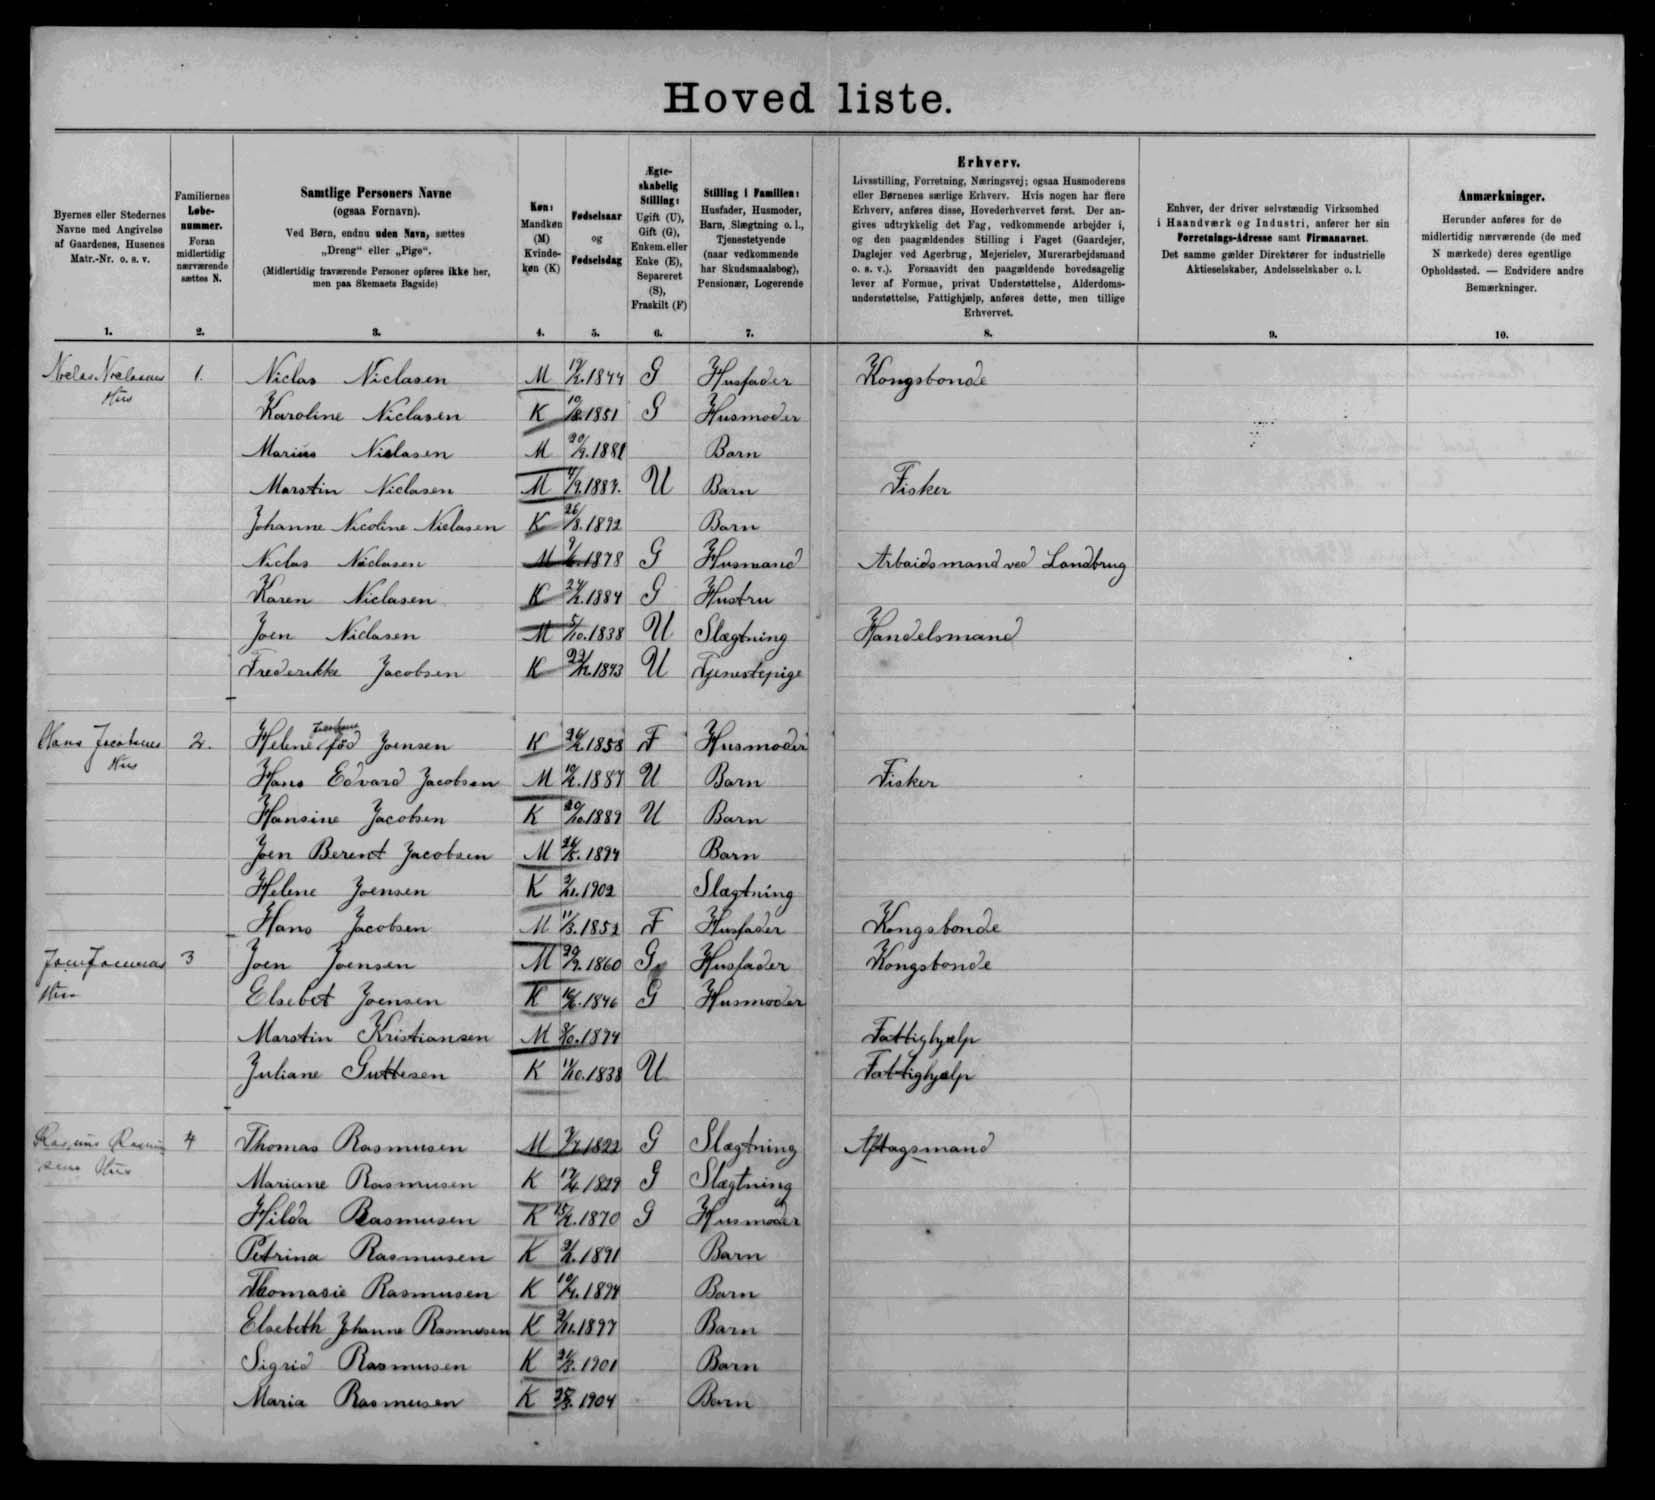 Hoved liste.
Byernes eller Stedernes Navne med Angivelse af Gaardenes, Husenes Matr.-Nr. o. s. v.
1.
Familiernes Løbe-nummer. Foran midlertidig nærværende sættes N.
2.
Samtlige Personers Navne
(ogsaa Fornavn).
Ved Børn, endnu uden Navn, sættes „Dreng“ eller „Pige“.
(Midlertidig fraværende Personer opføres ikke her, men paa Skemaets Bagside)
3.
Køn: Mandkøn (M) Kvinde-køn (K)
4.
Fødselsaar og Fødselsdag
5.
Ægte-skabelig Stilling: Ugift (U), Gift (G), Enkem. eller Enke (E), Separeret (S), Fraskilt (F)
6.
Stilling i Familien: Husfader, Husmoder, Barn, Slægtning o. l., Tjenestetyende (naar vedkommende har Skudsmaalsbog), Pensionær, Logerende
7.
Erhverv.
Livsstilling, Forretning, Næringsvej; ogsaa Husmoderens eller Børnenes særlige Erhverv. Hvis nogen har flere Erhverv, anføres disse, Hovederhvervet først. Der angives udtrykkelig det Fag, vedkommende arbejder i, og den paagældendes Stilling i Faget (Gaardejer, Daglejer ved Agerbrug, Mejerielev, Murerarbejdsmand o. s. v.). Forsaavidt den paagældende hovedsagelig lever af Formue, privat Understøttelse, Alderdoms-understøttelse, Fattighjælp, anføres dette, men tillige Erhvervet.
8.
Enhver, der driver selvstændig Virksomhed i Haandværk og Industri, anfører her sin Forretnings-Adresse samt Firmanavnet. Det samme gælder Direktører for industrielle Aktieselskaber, Andelsselskaber o. l.
9.
Anmærkninger.
Herunder anføres for de midlertidig nærværende (de med N mærkede) deres egentlige Opholdssted. — Endvidere andre Bemærkninger.
10.
Niclas Niclasens Hus 1. Niclas Niclasen M 1844 G Husfader Kongsbonde
Karoline Niclasen K 1851 G Husmoder
Marius Niclasen M 1881 Barn
Marstin Niclasen M 1887. U Barn Fisker
Johanne Nicoline Niclasen K 26/8.1892 Barn
Niclas Niclasen M 1878 G Husmand Arbaidsmand ved Landbrug
Karen Niclasen K 1884 G Hustru
Joen Niclasen M 5/10.1838 U Slægtning Handelsmand
Frederikke Jacobsen K 1843 U Tjenestepige
Hans Jacobsens Hus 2. Helene fød Joensen K 1858 F Husmoder
Hans Edvard Jacobsen M 1887 U Barn Fisker
Hansine Jacobsen K 20/10.1889 U Barn
Joen Berent Jacobsen M 1894 Barn
Helene Joensen K 1902 Slægtning
Hans Jacobsen M 11/3.1852 F Husfader Kongsbonde
Joen Joensens Hus 3 Joen Joensen M 1860 G Husfader Kongsbonde
Elsebet Joensen K 1846 G Husmoder
Marstin Kristiansen M 1894 Fattighjælp
Juliane Guttesen K 11/10.1838 U Fattighjælp
Rasmus Rasmussens Hus 4 Thomas Rasmusen M 1822 G Slægtning Aftagsmand
Mariane Rasmusen K 1829 G Slægtning
Hilda Rasmusen K 1870 G Husmoder
Petrina Rasmusen K 1891 Barn
Thomasie Rasmusen K 1894 Barn
Elsebeth Johanne Rasmusen K 1897 Barn
Sigrid Rasmusen K 1901 Barn
Maria Rasmusen K 1904 Barn